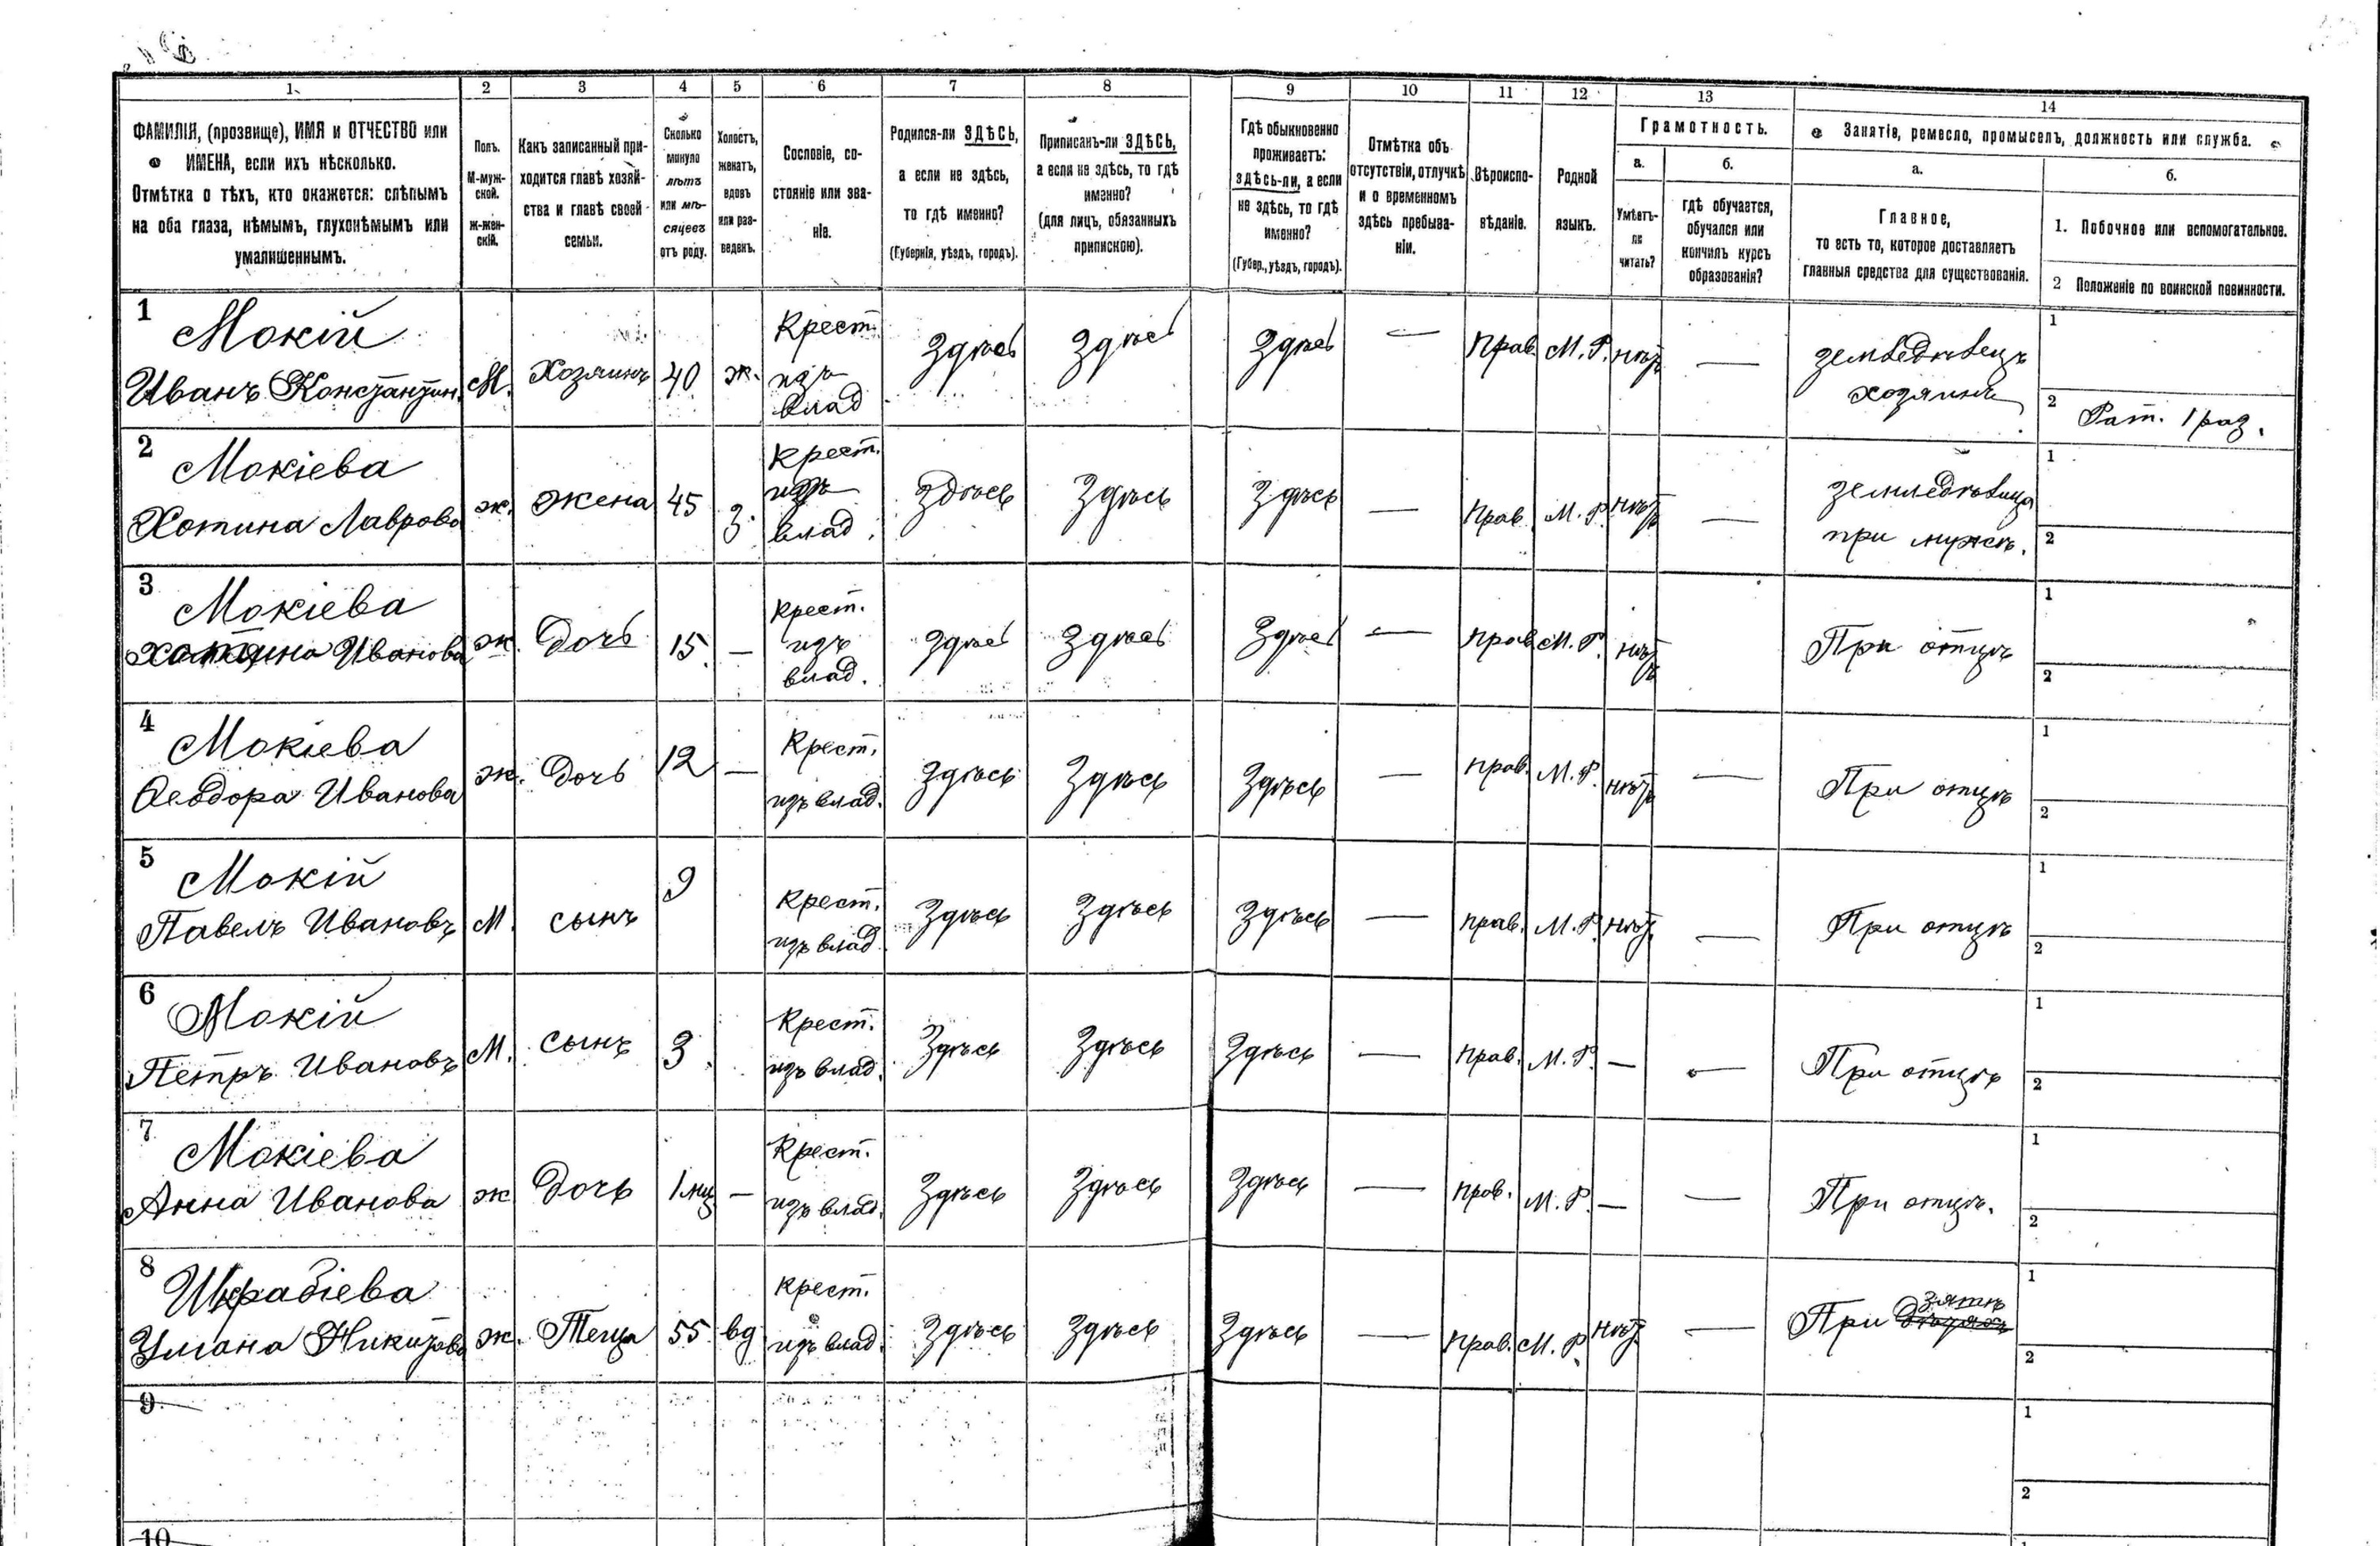 1 2 3 4 5 6 7 8 9 10 11 12 13 14
ФАМИЛІЯ, (прозвище), ИМЯ и ОТЧЕСТВО или
ИМЕНА, если ихъ нѣсколько.
Отмѣтка о тѣхъ, кто окажется: слѣпымъ
на оба глаза, нѣмымъ, глухонѣмымъ или
умалишеннымъ.
Полъ.
М-муж-
ской.
ж-жен-
скій.
Какъ записанный при-
ходится главѣ хозяй-
ства и главѣ своей
семьи.
Сколько
минуло
лѣтъ
или мѣ-
сяцевъ
отъ роду.
Холостъ,
женатъ,
вдовъ
или раз-
веденъ.
Сословіе, со-
стояніе или зва-
ніе.
Родился-ли ЗДѢСЬ,
а если не здѣсь,
то гдѣ именно?
(Губернія, уѣздъ, городъ).
Приписанъ-ли ЗДѢСЬ,
а если не здѣсь, то гдѣ
именно?
(для лицъ, обязанныхъ
припискою).
Гдѣ обыкновенно
проживаетъ:
здѣсь-ли, а если
не здѣсь, то гдѣ
именно?
(Губер., уѣздъ, городъ).
Отмѣтка объ
отсутствіи, отлучкѣ
и о временномъ
здѣсь пребыва-
ніи.
Вѣроиспо-
вѣданіе.
Родной
языкъ.
Грамотность.
а.
Умѣетъ-
ли
читать?
б.
гдѣ обучается,
обучался или
кончилъ курсъ
образованія?
Занятіе, ремесло, промыселъ, должность или служба.
а.
Главное,
то есть то, которое доставляетъ
главныя средства для существованія.
б.
1. Побочное или вспомогательное.
2 Положеніе по воинской повинности.
1
Мокій
Иванъ Константин.
М.
Хозяинъ
40
ж.
Крест.
изъ
влад
Здѣсь
Здѣсь
Здѣсь
—
Прав.
М. Р.
нѣтъ
—
земледѣлецъ
хозяинъ
1
2 Рат. 1 раз.
2
Мокіева
Хотина Лаврова
ж.
жена
45
З.
крест.
изъ
влад.
Здѣсь
Здѣсь
Здѣсь
—
Прав.
М. Р.
нѣтъ
—
земледѣлица
при мужѣ.
1
2
3
Мокіева
Иванова
ж.
Дочь
15.
—
Крест.
изъ
влад.
Здѣсь
Здѣсь
Здѣсь
—
прав
М. Р.
нѣтъ
При отцѣ
1
2
4
Мокіева
Ѳеодора Иванова
ж.
Дочь
12
—
Крест.
изъ влад.
Здѣсь
Здѣсь
Здѣсь
—
прав.
М. Р.
нѣтъ
—
При отцѣ
1
2
5
Мокій
Павелъ Ивановъ
М.
сынъ
9
Крест.
изъ влад.
Здѣсь
Здѣсь
Здѣсь
—
прав.
М. Р.
нѣт.
—
При отцѣ
1
2
6
Мокій
Петръ Ивановъ
М.
сынъ
3.
Крест.
изъ влад.
Здѣсь
Здѣсь
Здѣсь
—
прав.
М. Р.
—
—
При отцѣ
1
2
7
Мокіева
Анна Иванова
ж
Дочь
1 мц
—
Крест.
изъ влад.
Здѣсь
Здѣсь
Здѣсь
—
прав.
М. Р.
—
—
При отцѣ.
1
2
8
Уліана Никитова
ж.
Теща
55
вд
крест.
изъ влад.
Здѣсь
Здѣсь
Здѣсь
—
Прав.
М. Р.
нѣт.
—
При зятѣ
1
2
9
1
2
10
1